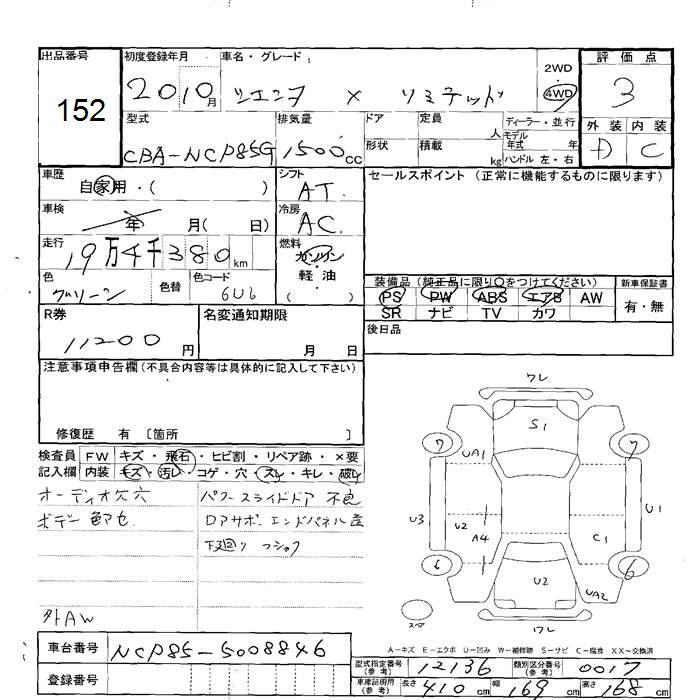 出品番号 初度登録年月 車名・グレード 評価点
152 2010月 シエンタ X リミテッド 2WD 4WD 3
型式 排気量 ドア 定員 人 ディーラー・並行 外装 内装
CBA-NCP85G 1500CC 形状 積載 kg モデル年式 年 ハンドル 左・右 D C
車歴 自家用・( ) シフト AT セールスポイント (正常に機能するものに限ります)
車検 年 月( 日) 冷房 AC
走行 19万4千380km 燃料 ガソリン 軽・油 ( )
色 グリーン 色替 色コード 6U6
装備品 (純正品に限り○をつけてください) 新車保証書
PS PW ABS エアB AW 有・無
SR ナビ TV カワ
R券 11200円 名変通知期限 月 日 後日品
注意事項申告欄 (不具合内容等は具体的に記入して下さい)
修復歴 有 〔箇所 〕
検査員 FW キズ・飛石・ヒビ割・リペア跡・×要
記入欄 内装 キズ・汚レ・コゲ・穴・スレ・キレ・破レ
オーディオ欠穴 パワースライドドア 不良
ボデー色アセ
下廻り フショク
外AW
ワレ
S1
7 7
UA1
U3 U2 A4 C1 U1
6 6
U2 UA2
スペア ワレ
A-キズ E-エクボ U-凹み W-補修跡 S-サビ C-腐食 XX-交換済
車台番号 NCP85-5008846
登録番号
型式指定番号(参考) 12136 類別区分番号(参考) 0017
車庫証明用(参考) 長さ 410cm 幅 169cm 高さ 168cm